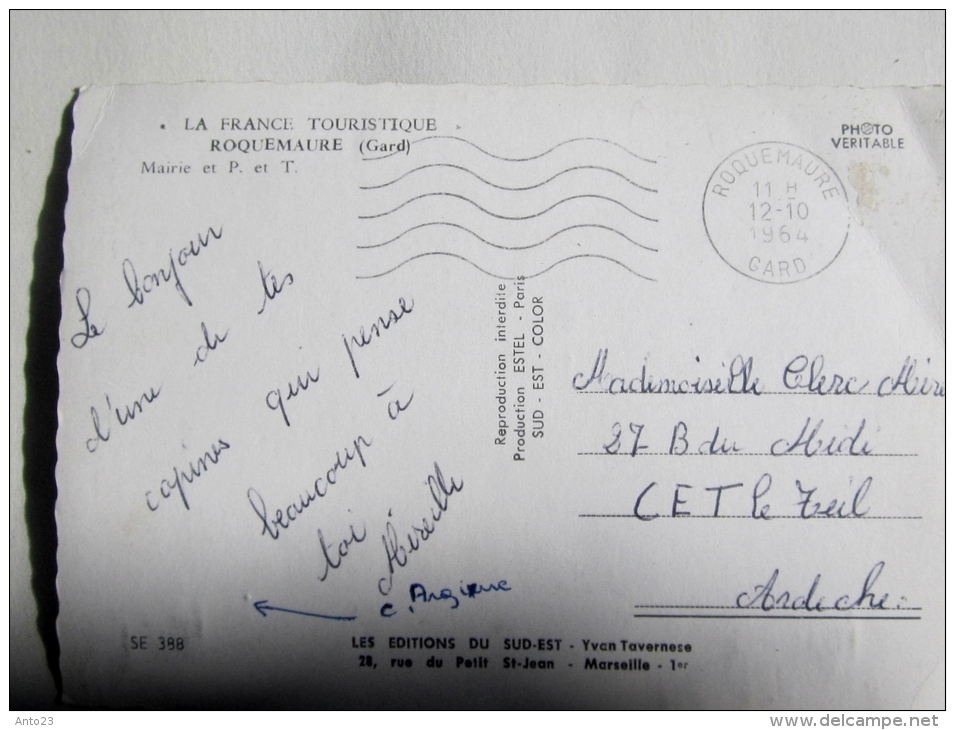 LA FRANCE TOURISTIQUE
ROQUEMAURE (Gard)
Mairie et P. et T.
PHOTO
VERITABLE
ROQUEMAURE
11 H
12-10
1964
GARD
Le bonjour
d'une de tes
copines qui pense
beaucoup à
toi
Mireille
C.
Reproduction interdite
Production ESTEL - Paris
SUD - EST - COLOR
Mademoiselle Clerc Mire
27 B du Midi
CET le Teil
Ardèche
SE 388
LES EDITIONS DU SUD-EST - Yvan Tavernese
28, rue du Petit St-Jean - Marseille - 1er
Anto23
www.delcampe.net